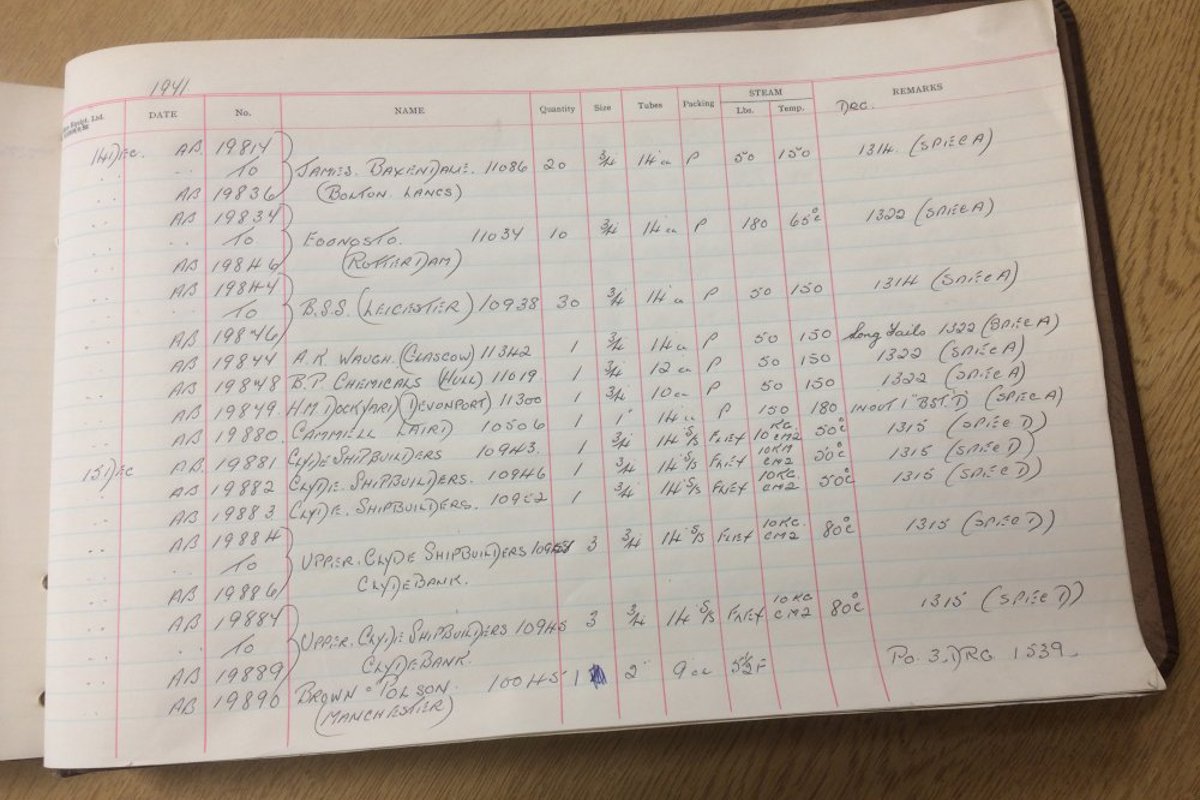 1941
DATE No. NAME Quantity Size Tubes Packing STEAM Lbs. Temp. REMARKS
DRG.
14 DEC. AB 19814
TO JAMES. BAXENDALE. 11086 20 3/4 14 P 50 150 1314. (SPEC A)
AB 19836 (BOLTON. LANCS)
AB 19834
TO ECONOSTO. 11034 10 3/4 14 P 180 65°C 1322 (SPEC A)
AB 19846 (ROTTERDAM)
AB 19844
TO B.S.S. (LEICESTER) 10938 30 3/4 14 P 50 150 1314 (SPEC A)
AB 19846
AB 19844 A.K. WAUGH. (GLASGOW) 11342 1 3/4 14 P 50 150 Long Tails 1322 (SPEC A)
AB 19848 B.P. CHEMICALS (HULL) 11019 1 3/4 12 P 50 150 1322 (SPEC A)
AB 19849 H.M. DOCKYARD (DEVONPORT) 11300 1 3/4 10 P 50 150 1322 (SPEC A)
AB 19880 CAMMELL LAIRD 10506 1 1" 14 P 150 180 INOUT 1" BST.D (SPEC A)
15 DEC AB 19881 CLYDE SHIPBUILDERS 10943. 1 3/4 14 S/S 10 CM2 50°C 1315 (SPEC D)
AB 19882 CLYDE. SHIPBUILDERS. 10946 1 3/4 14 S/S 10 CM2 1315 (SPEC D)
AB 19883 CLYDE. SHIPBUILDERS. 1 3/4 14 S/S 10 KG. CM2 50°C 1315 (SPEC D)
AB 19884
TO UPPER. CLYDE SHIPBUILDERS 3 3/4 14 S/S 10 KG. CM2 80°C 1315 (SPEC D)
AB 19886 CLYDEBANK.
AB 19884
TO UPPER. CLYDE SHIPBUILDERS 10945 3 3/4 14 S/S 10 KG CM2 80°C 1315 (SPEC D)
AB 19889 CLYDEBANK.
AB 19890 BROWN & POLSON. 10045 1 2" 9 5½F PO. 3. DRG 1539
(MANCHESTER)